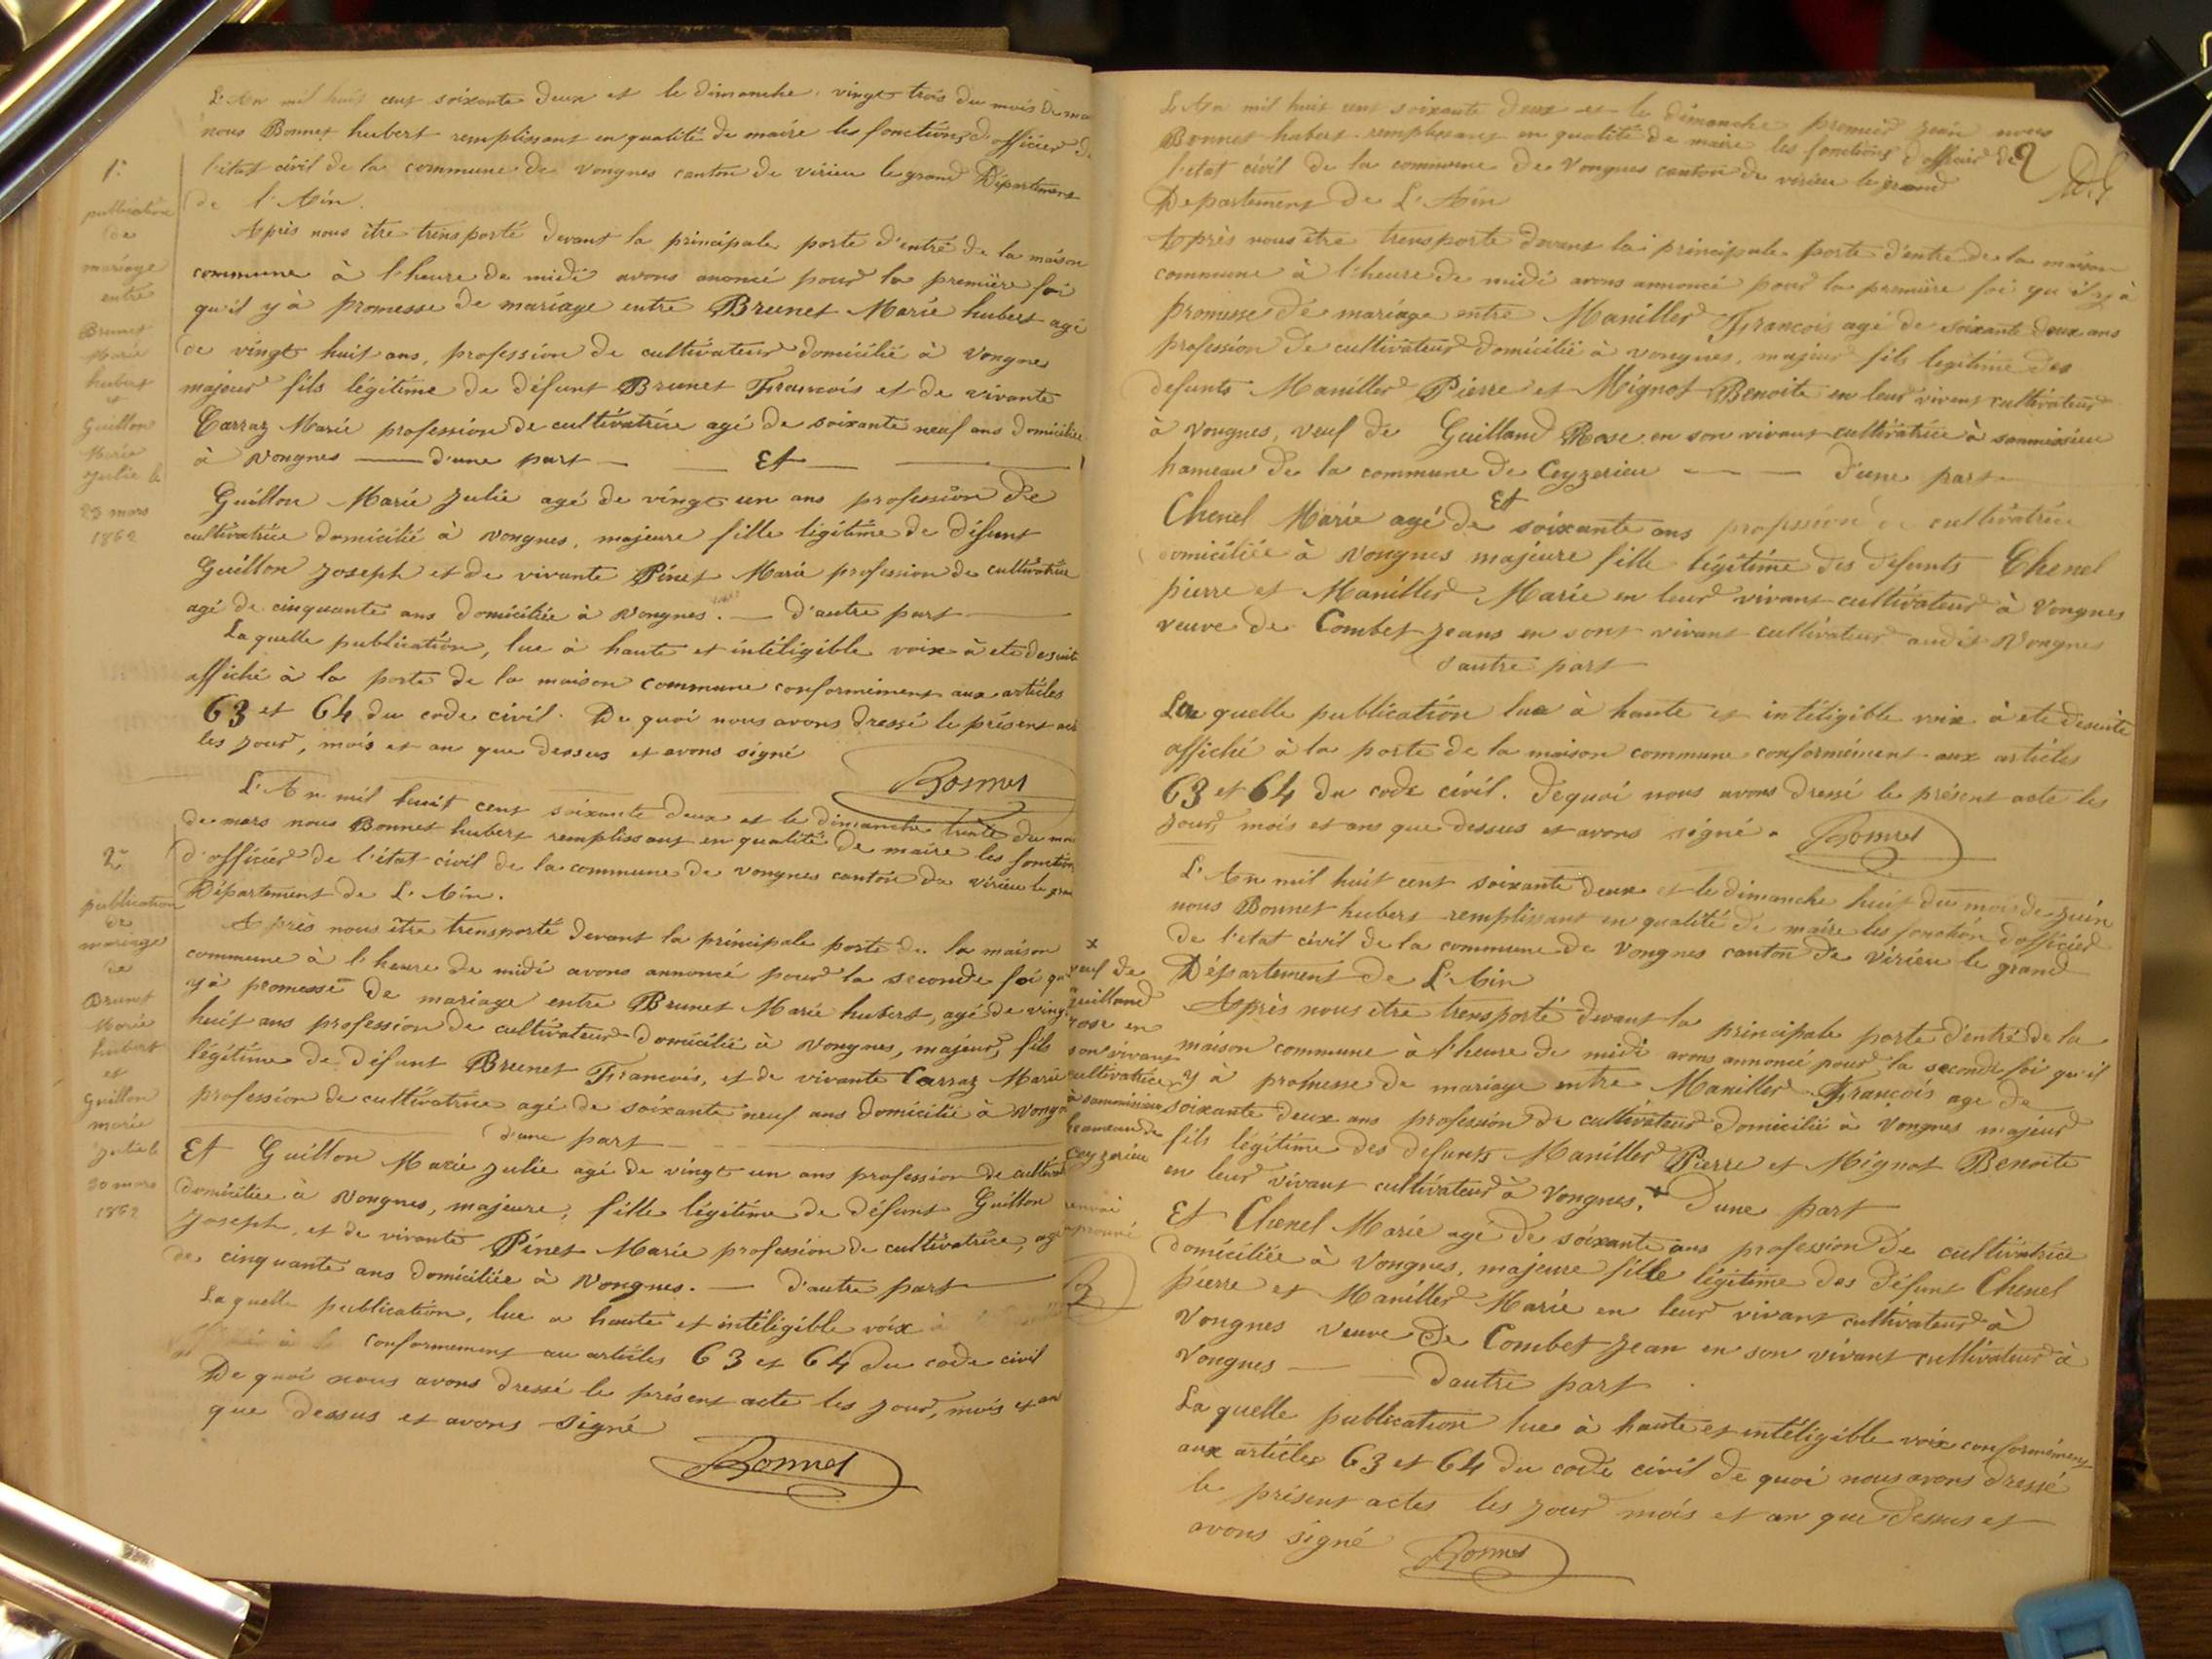 L'An mil huit cent soixante deux et le dimanche vingt trois du mois de
nous Bonnet hubert remplissant en qualité de maire les fonctions d'officier de
l'état civil de la commune de vongnes canton de virieu le grand Département
de l'Ain.
1e
publication
de
mariage
entre
Brunet
Marie
hubert
et
Guillon
Marie
Julie le
23 mars
1862
Après nous être trensporté devant la principale porte d'entré de la maison
commune à l'heure de midi avons anoncé pour la première foi
qu'il y à promesse de mariage entre Brunet Marie hubert agé
de vingt huit ans, profession de cultivateur domicilié à vongnes
majeur fils légitime de défunt Brunet Francois et de vivante
Carraz Marie profession de cultivatrice agé de soixante neuf ans domiciliée
à vongnes — d'une part — Et —
Guillon Marie Julie agé de vingt un ans profession de
cultivatrice domicilié à vongnes, majeure fille légitime de défunt
Guillon Joseph et de vivante Pinet Marie profession de cultivatrice
agé de cinquante ans domiciliée à vongnes. — d'autre part —
La quelle publication, lue à haute et intéligible voix à ete desuite
affiché à la porte de la maison commune conformément aux articles
63 et 64 du code civil. De quoi nous avons dressé le présent acte
les jour, mois et an que dessus et avons signé
Bonnet
L'An mil huit cent soixante deux et le dimanche trente du moi
de mars nous Bonnet hubert remplissant en qualité de maire les fonction
d'officier de l'état civil de la commune de vongnes canton de virieu le gran
Département de L'Ain.
2e
publication
de
mariage
de
Brunet
Marie
hubert
et
Guillon
marie
Julie le
30 mars
1862
Après nous être trensporté devant la principale porte de la maison
commune à l'heure de midi avons annoncé pour la seconde foi qu
y à promesse de mariage entre Brunet Marie hubert, agé de vingt
huit ans profession de cultivateur domicilié à vongnes, majeur, fils
légitime de défunt Brunet Francois, et de vivante Carraz Marie
profession de cultivatrice agé de soixante neuf ans domicilié à vongn
d'une part —
Et Guillon Marie Julie agé de vingt un ans profession de cultiva
domiciliée à vongnes, majeure, fille légitime de défunt Guillon
Joseph, et de vivante Pinet Marie profession de cultivatrice, agé
de cinquante ans domiciliée à vongnes. — d'autre part —
La quelle publication, lue a haute et intéligible voix à
conformement au articles 63 et 64 du code civil
De quoi nous avons dressé le présent acte les jour, mois et an
que dessus et avons signé
Bonnet
L'An mil huit cent soixante deux et le dimanche premier juin nous
Bonnet hubert remplissant en qualité de maire les fonctions d'officier de
l'état civil de la commune de vongnes canton de virieu le grand
Departement de L'Ain
2
Après nous être trensporte devant la principale porte d'entré de la maison
commune à l'heure de midi avons annoncé pour la première foi qu'il y à
promesse de mariage entre Maniller Francois agé de soixante deux ans
profession de cultivateur domicilié à vongnes, majeur fils legitime des
defunts Maniller Pierre et Mignot Benoite en leur vivent cultivateur
à vongnes, veuf de Guilland Rose en son vivant cultivatrice à sammissieu
hameau de la commune de Ceyzerieu — — d'une part
Et
Chenel Marie agé de soixante ans profession de cultivatrice
domiciliée à vongnes majeure fille légitime des défunts Chenel
pierre et Maniller Marie en leur vivant cultivateur à vongnes
veuve de Combet Jeans en sont vivant cultivateur audit vongnes
d'autre part
La quelle publication lue à haute et intéligible voix à ete desuite
affiché à la porte de la maison commune conformément aux articles
63 et 64 du code civil. dequoi nous avons dressé le présent acte les
jour, mois et ans que dessus et avons signé.
Bonnet
L'An mil huit cent soixante deux et le dimanche huit du moi de juin
nous Bonnet hubert remplissant en qualité de maire les fonction d'officier
de l'état civil de la commune de vongnes canton de virieu le grand
Département de L'Ain
Après nous être trensporté devant la principale porte d'entré de la
maison commune à l'heure de midi avons annoncé pour la seconde foi qu'il
y à promesse de mariage entre Maniller Francois age de
soixante deux ans profession de cultivateur domicilié à vongnes majeur
fils légitime des defunts Maniller Pierre et Mignot Benoite
en leur vivant cultivateur à vongnes. x D'une part
x
veuf de
guilland
rose en
son vivant
cultivatrice
à sammisieu
hameau de
Ceyzerieu
renvoi
aprouvé
B
Et Chenel Marie agé de soixante ans profession de cultivatrice
domiciliée à vongnes, majeure fille légitime des défunt Chenel
pierre et Maniller Marie en leur vivant cultivateur à
vongnes veuve de Combet Jean en son vivant cultivateur à
vongnes — — dautre part
La quelle publication lue à haute et intéligible voix conformément
aux articles 63 et 64 du code civil de quoi nous avons dressé
le présent actes les jour mois et an que dessus et
avons signé
Bonnet